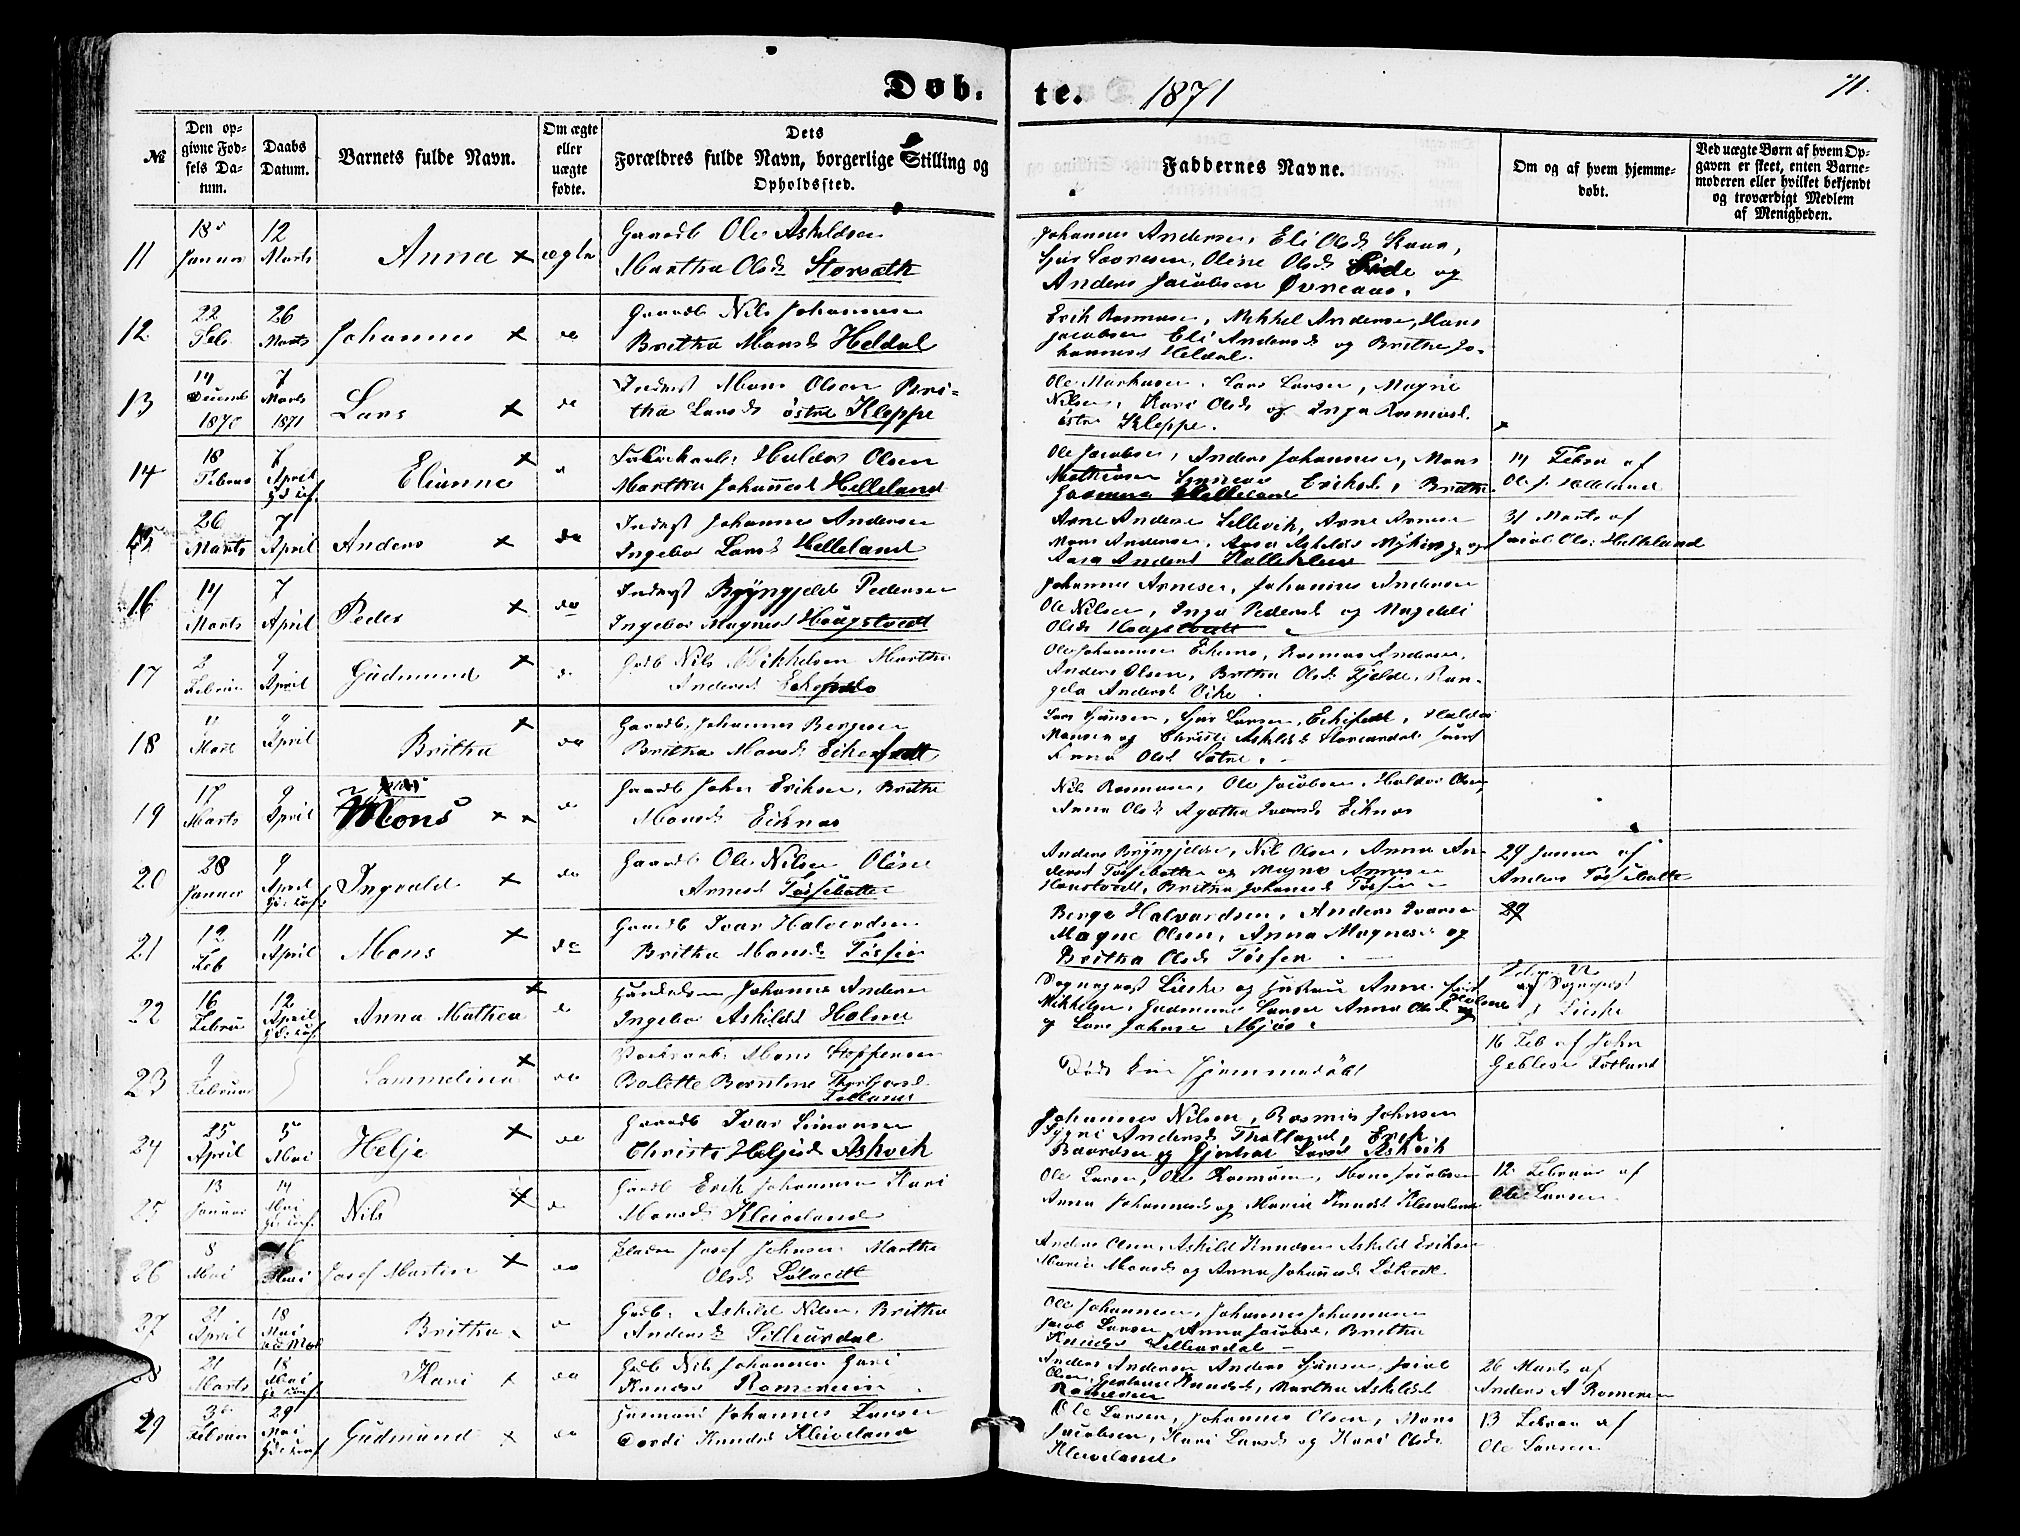 Døb-
te. 1871
71.
№
Den op-
givne Fød-
sels Da-
tum.
Daabs
Datum.
Barnets fulde Navn.
Om ægte
eller
uægte
fødte.
Dets
Forældres fulde Navn, borgerlige Stilling og
Opholdssted.
Faddernes Navne.
Om og af hvem hjemme-
døbt.
Ved uægte Børn af hvem Op-
gaven er skeet, enten Barne-
moderen eller hvilket bekjendt
og troværdigt Medlem
af Menigheden.
11
18
Januar
12
Marts
Anna
ægte
Gaardb Ole Askildsen
Martha Olsd Storsæth
Johannes Andersen, Eli Olsd
Olene Olsd og
Anders Jacobsen Øvreaas.
12
22
Feb
26
Marts
Johannes
do
Gaardb Nils Johannesen
Britha Monsd Heldal
Erik Rasmusen, Mikkel Andersen, Hans
Jacobsen Eli Andersd og Britha Jo-
hannesd Heldal.
13
14
Decemb
1870
7
Marts
1871
Lars
do
Inderst Mons Olsen Bri-
tha Larsd østre Kleppe
Ole Markusen, Lars Larsen, Magne
Nilsen, Kari Olsd og Inga Rasmusd.
østre Kleppe.
14
18
Februar
7
April
Elianne
Haldor Olsen
Martha Johannesd Helleland
Ole Jacobsen, Anders Johannesen, Mons
Mathiasen Eriksd, Britha
Helleland
14 Febru af
Ole J. Helleland
15
26
Marts
7
April
Anders
do
Inderst Johannes Andersen
Ingebor Larsd Helleland
Arne Andersen Lillevik, Arne Arnesen
Mons Andersen, Aasa Askildsd Myking, og
Aasa Andersd
31 Marts af
Jacob Ols: Helleland
16
14
Marts
7
April
Peder
do
Inderst Bryngjeld Pedersen
Ingebor Magnesd Haugstvedt
Johannes Arnesen, Johannes Andersen
Ole Nilsen, Inga Pedersd og Magdeli
Olsd Haugstvedt
17
2
Februar
9
April
Gudmund
do
Gdb Nils Mikkelsen Martha
Andersd
Ole Johannesen, Rasmus Andersen,
Anders Olsen, Britha Olsd Fjelde, Ran-
gela Andersd Vike
18
9
April
Britha
do
Gaardb. Johannes Bergesen
Britha Monsd
Lars Larsen, Haldor
Monsen og Christi Askildsd
Anna Olsd Sætre.
19
17
Marts
9
April
Mons
do
Gaardb John Eriksen, Britha
Monsd Eiknes
Nils Rasmusen, Ole Jacobsen, Haldor Olsen
Anna Olsd Agatha Ivarsd Eiknes
20
28
Januar
9
April
Ingvald
do
Gaardb Ole Nilsen Oline
Arnesd Tøssebotten
Anders Bryngjeldsen, Nils Olsen, Anna An-
dersd Tøssebotten og Magne Arnesen
Haustvedt, Britha Johannesd Tøssen
29 Januar af
Anders Tøssebotten
21
12
Feb
11
April
Mons
do
Gaardb Ivar Halvordsen
Britha Monsd Tøssen
Berge Halvardsen, Anders Ivarsen
Magne Olsen, Anna Magnesd og
Britha Olsd Tøssen
29
22
16
Febru
12
April
Anna Mathea
do
Johannes Andersen
Ingebor Askildsd Holme
Sogneprest Lieske og Hustru Anne
Mikkelsen, Gudmund Larsen Anna Olsd
og Lars Johnsen Mjøs.
af Sognepr
Lieske
23
9
Februar
Sammeline
do
Mons Steffensen
Bolette Berntine
Totland
Død kun hjemmedøbt
16 Feb af John
Totland
24
25
April
5
Mai
Helje
do
Gaardb Ivar Simonsen
Christi Heljesd Askvik
Johannes Nilsen, Rasmus Johnsen
Andersd Erik
Baardsen og Gjertrud Larsd Askvik
25
13
Januar
14
Mai
Nils
do
Gaardb Erik Johannesen Kari
Monsd Kleiveland
Ole Larsen, Ole Rasmusen, Mons Jacobsen
Anna Johannesd og Maria Knudsd Kleiveland
12 Februar af
Ole Larsen
26
8
Mai
16
Mai
Josef Martin
do
Josef Johnsen Martha
Olsd Løtvedt
Anders Olsen, Askild Knudsen Askild Eriksen
Maria Monsd og Anna Johannesd Løtvedt.
27
21
April
18
Mai
Britha
do
Gdb. Askild Nilsen, Britha
Andersd Lilleurdal
Ole Johannesen, Johannes Johannesen
Jacob Larsen, Anna Jacobsd, Britha
Knudsd Lilleurdal
28
21
Marts
18
Mai
Kari
do
Gdb Nils Johannesen Guri
Knudsd Romereim
Anders Andersen Anders Jacob
Olsen, Knudsd, Martha Askildsd
Romereim
26 Marts af
Anders A Romereim
29
3
Februar
29
Mai
Gudmund
do
Husmand Johannes Larsen
Dordi Knudsd Kleiveland
Ole Larsen, Johannes Olsen, Mons
Jacobsen, Kari Larsd og Kari Olsd
Kleiveland
13 Februar af
Ole Larsen